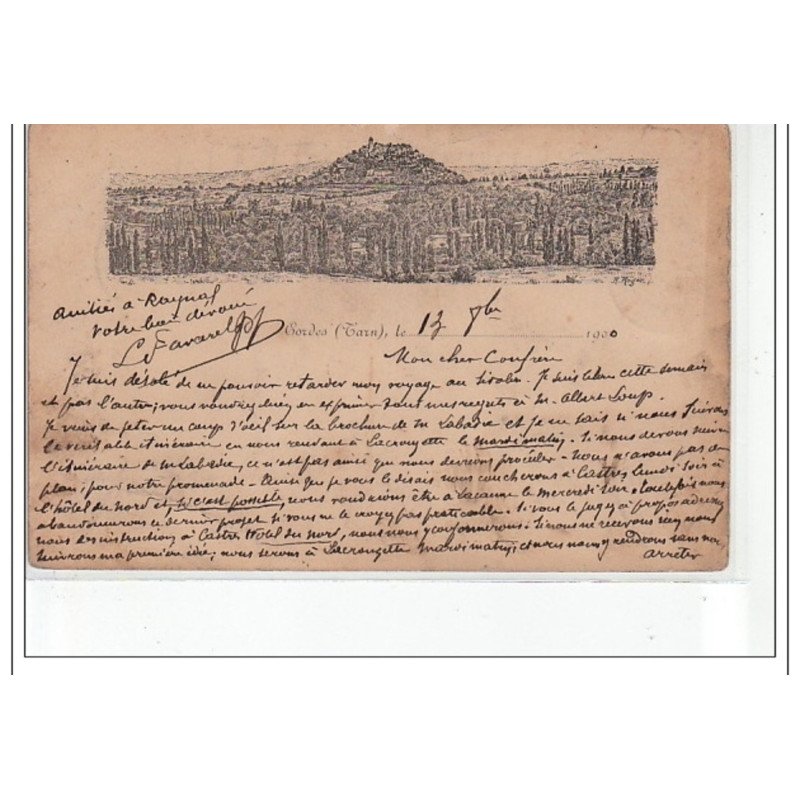 Amitiés à Raynal
votre bien dévoué
L Favarel
Cordes (Tarn), le 13 7bre 1900
Mon cher Confrère
Je suis désolé de ne pouvoir retarder mon voyage au Sidobre. Je suis libre cette semaine
et pas l'autre; vous voudrez bien en exprimer tous mes regrets à M. Albert Loup.
Je viens de jeter un coup d'oeil sur la brochure de M Labadie et je ne sais si nous suivrons
le véritable itinéraire en nous rendant à Lacrouzette le mardi matin. Si nous devons suivre
l'itinéraire de M Labadie, ce n'est pas ainsi que nous devrions procéder. Nous n'avons pas de
plan; pour notre promenade. Ainsi que je vous le disais nous coucherons à Castres lundi soir à
l'hôtel du Nord et, si c'est possible, nous voudrions être à Lacaune le mercredi soir. Toutefois nous
abandonnerons ce dernier projet si vous ne le croyez pas praticable. Si vous le jugez à propos adressez
nous des instructions à Castres Hôtel du Nord, nous nous y conformerons. Si nous ne recevons rien nous
suivrons ma première idée; nous serons à Lacrouzette mardi matin; et nous nous y rendrons sans nous
arrêter